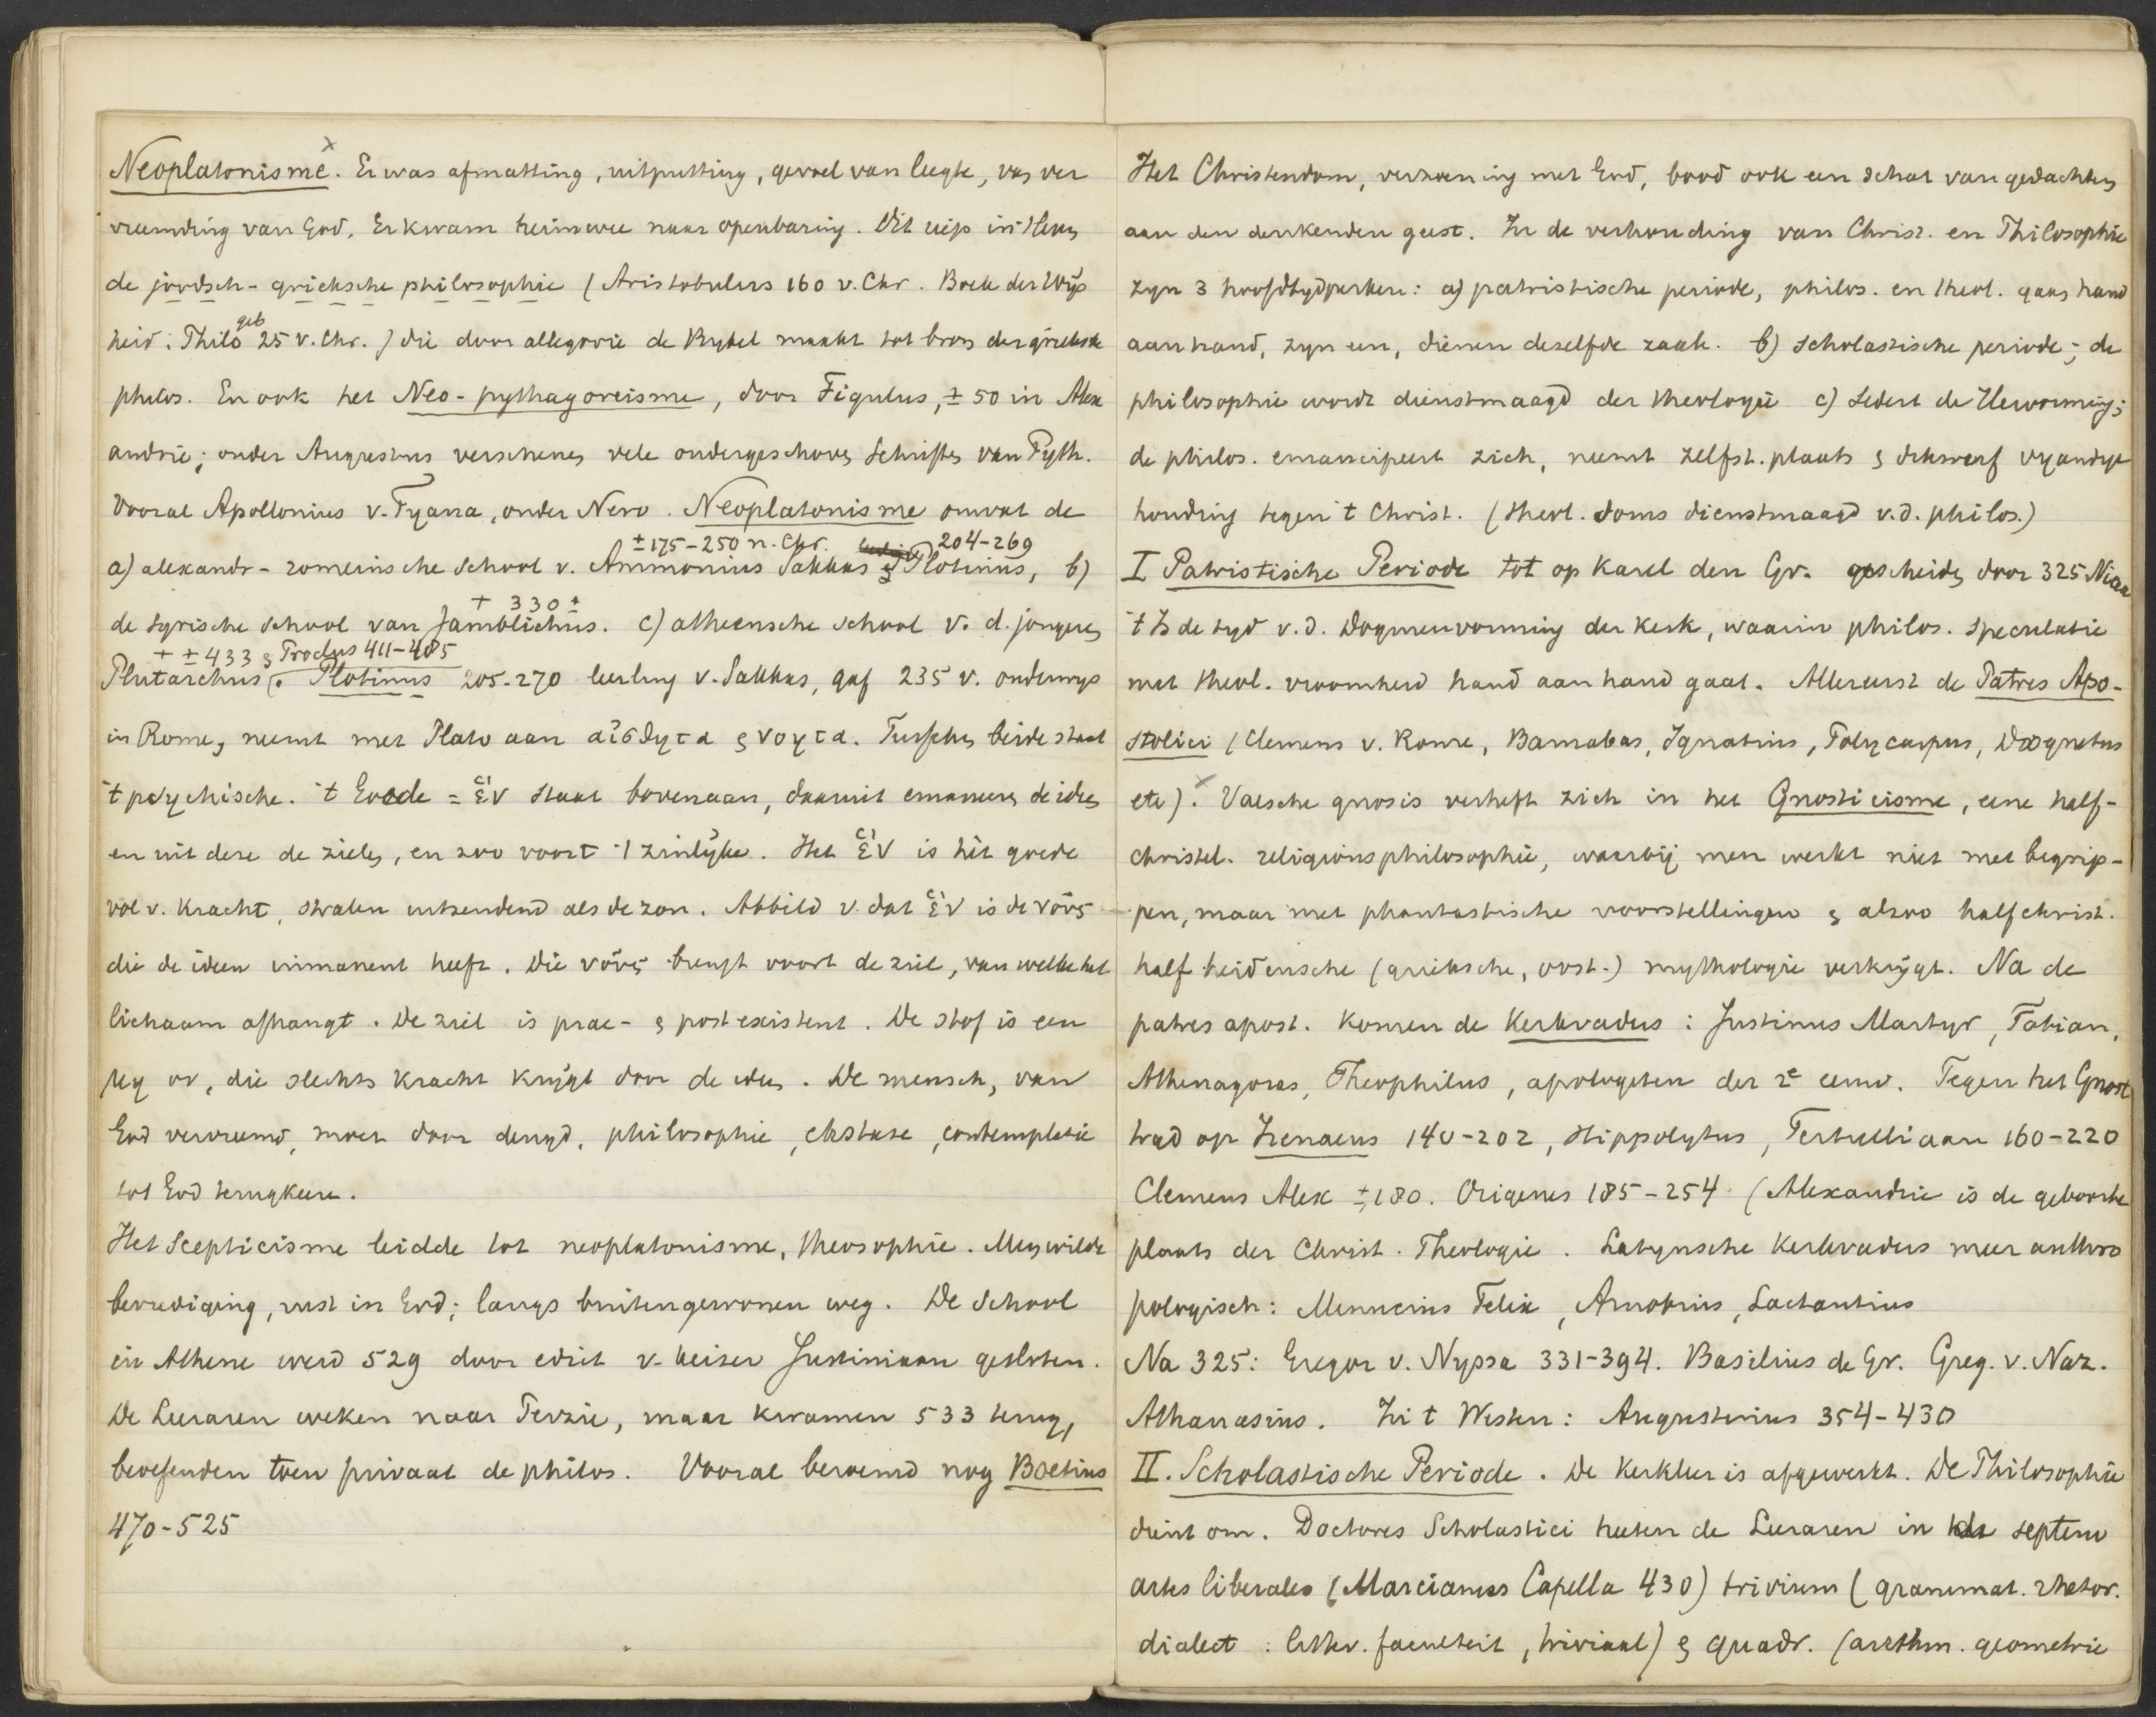 Neoplatonisme. Er was afmatting, uitputting, gevoel van leegte, van ver
vreemding van God. Er kwam heimwee naar openbaring. Dit riep in 't leven
de joodsch-grieksche philosophie (Aristobulus 160 v. Chr. Boek der Wijs
geb
heid; Philo 25 v. Chr.) die door allegorie de Bybel maakt tot bron der grieksche
philos. En ook het Neo-pythagoreisme, door Figulus, ± 50 in Alex
andrie; onder Augustus verschenen vele ondergeschoven Schriften van Pyth.
Vooral Apollonius v. Tyana, onder Nero. Neoplatonisme omvat de
± 175-250 n. Chr. 204-269
a) alexandr-romeinsche School v. Ammonius Sakkas & Plotinus, b)
+ 330 ±
de syrische School van Jamblichus. c) atheensche School v. d. jongeren
+ ± 433 & Proclus 411-485
Plutarchus. Plotinus 205-270 leerling v. Sakkas, gaf 235 v. onderwys
in Rome, neemt met Plato aan αἰσθητα & νοητα. Tusschen beide staat
't psychische. 't Goede = ἑν staat bovenaan, daaruit emaneeren de ideen
en uit deze de zielen, en zoo voort 't zinlijke. Het ἑν is hét goede
vol v. Kracht, stralen uitzendend als de zon. Abbild v. dat ἑν is de νοῦς
die de ideen immanent heeft. Die νοῦς brengt voort de ziel, van welke het
lichaam afhangt. De ziel is prae- & postexistent. De stof is een
μη ον, die slechts Kracht krijgt door de ideen. De mensch, van
God vervreemd, moet door deugd, philosophie, ekstase, contemplatie
tot God terugkeeren.
Het Scepticisme leidde tot neoplatonisme, theosophie. Men wilde
bevrediging, rust in God; langs buitengewonen weg. De School
in Athene werd 529 door edict v. keizer Justiniaan gesloten.
De Leeraren weken naar Perzie, maar kwamen 533 terug,
beoefenden toen privaat de philos. Vooral beroemd nog Boetius
470-525
Het Christendom, verzoening met God, bood ook een schat van gedachten
aan den denkenden geest. In de verhouding van Christ. en Philosophie
zyn 3 hoofdtydperken: a) patristische periode, philos. en theol. gaan hand
aan hand, zyn een, dienen dezelfde zaak. b) scholastische periode; de
philosophie wordt dienstmaagd der theologie c) Sedert de Hervorming;
de philos. emancipeert zich, neemt zelfst. plaats & dikwerf vyandige
houding tegen 't Christ. (theol. soms dienstmaagd v.d. philos.)
I Patristische Periode tot op Karel den Gr. gescheiden door 325 Nicea
't Is de tyd v.d. Dogmenvorming der Kerk, waarin philos. Speculatie
met theol. vroomheid hand aan hand gaat. Allereerst de Patres Apo-
stolici (Clemens v. Rome, Barnabas, Ignatius, Polycarpus, Diognetus
etc). Valsche gnosis verheft zich in het Gnosticisme, eene half-
christel. religionsphilosophie, waarbij men werkt niet met begrip-
pen, maar met phantastische voorstellingen & alzoo half christ.
half heidensche (grieksche, oost.) mythologie verkrijgt. Na de
patres apost. komen de Kerkvaders: Justinus Martyr, Tatian,
Athenagoras, Theophilus, apologeten der 2e eeuw. Tegen het Gnost
trad op Irenaeus 140-202, Hippolytus, Tertulliaan 160-220
Clemens Alex ± 180. Origenes 185-254. (Alexandrie is de geboorte
plaats der Christ. Theologie. Latynsche Kerkvaders meer anthro
pologisch: Minucius Felix, Arnobius, Lactantius
Na 325: Gregor v. Nyssa 331-394. Basilius de Gr. Greg. v. Naz.
Athanasius. In 't Westen: Augustinus 354-430
II. Scholastische Periode. De Kerkleer is afgewerkt. De Philosophie
dient om. Doctores Scholastici heeten de Leeraren in de septem
artes liberales (Marcianus Capella 430) trivium (grammat. rhetor.
dialect: letter. faculteit, triviaal) & quadr. (arithm. geometrie